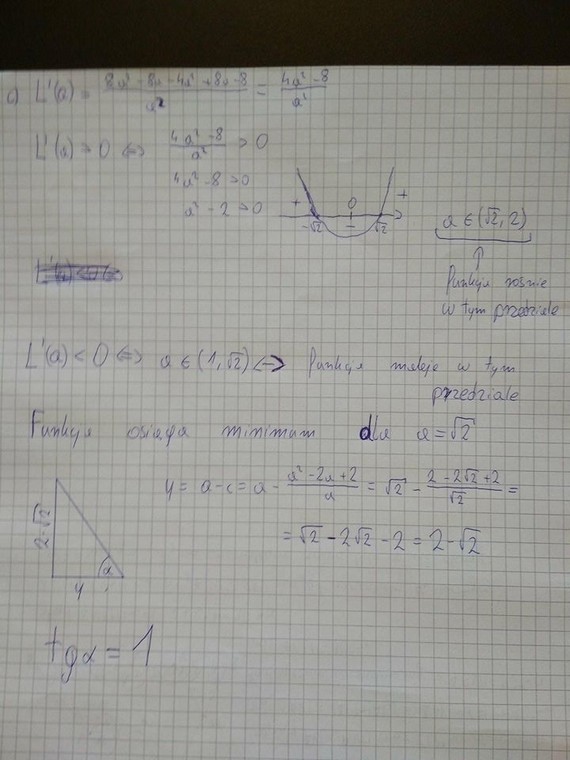 c) L'(a) = (8a² - 8a - 4a² + 8a - 8)/a² = (4a² - 8)/a²
L'(a) > 0 ⇔ (4a² - 8)/a² > 0
4a² - 8 > 0
a² - 2 > 0
+ 0 +
-√2 - √2
a ∈ (√2, 2)
↑
funkcja rośnie
w tym przedziale
L'(a) < 0 ⇔ a ∈ (1, √2) ⇔ funkcja maleje w tym
przedziale
Funkcja osiąga minimum dla a = √2
y = a - c = a - (a² - 2a + 2)/a = √2 - (2 - 2√2 + 2)/√2 =
= √2 - 2√2 - 2 = 2 - √2
2-√2
α
y
tgα = 1